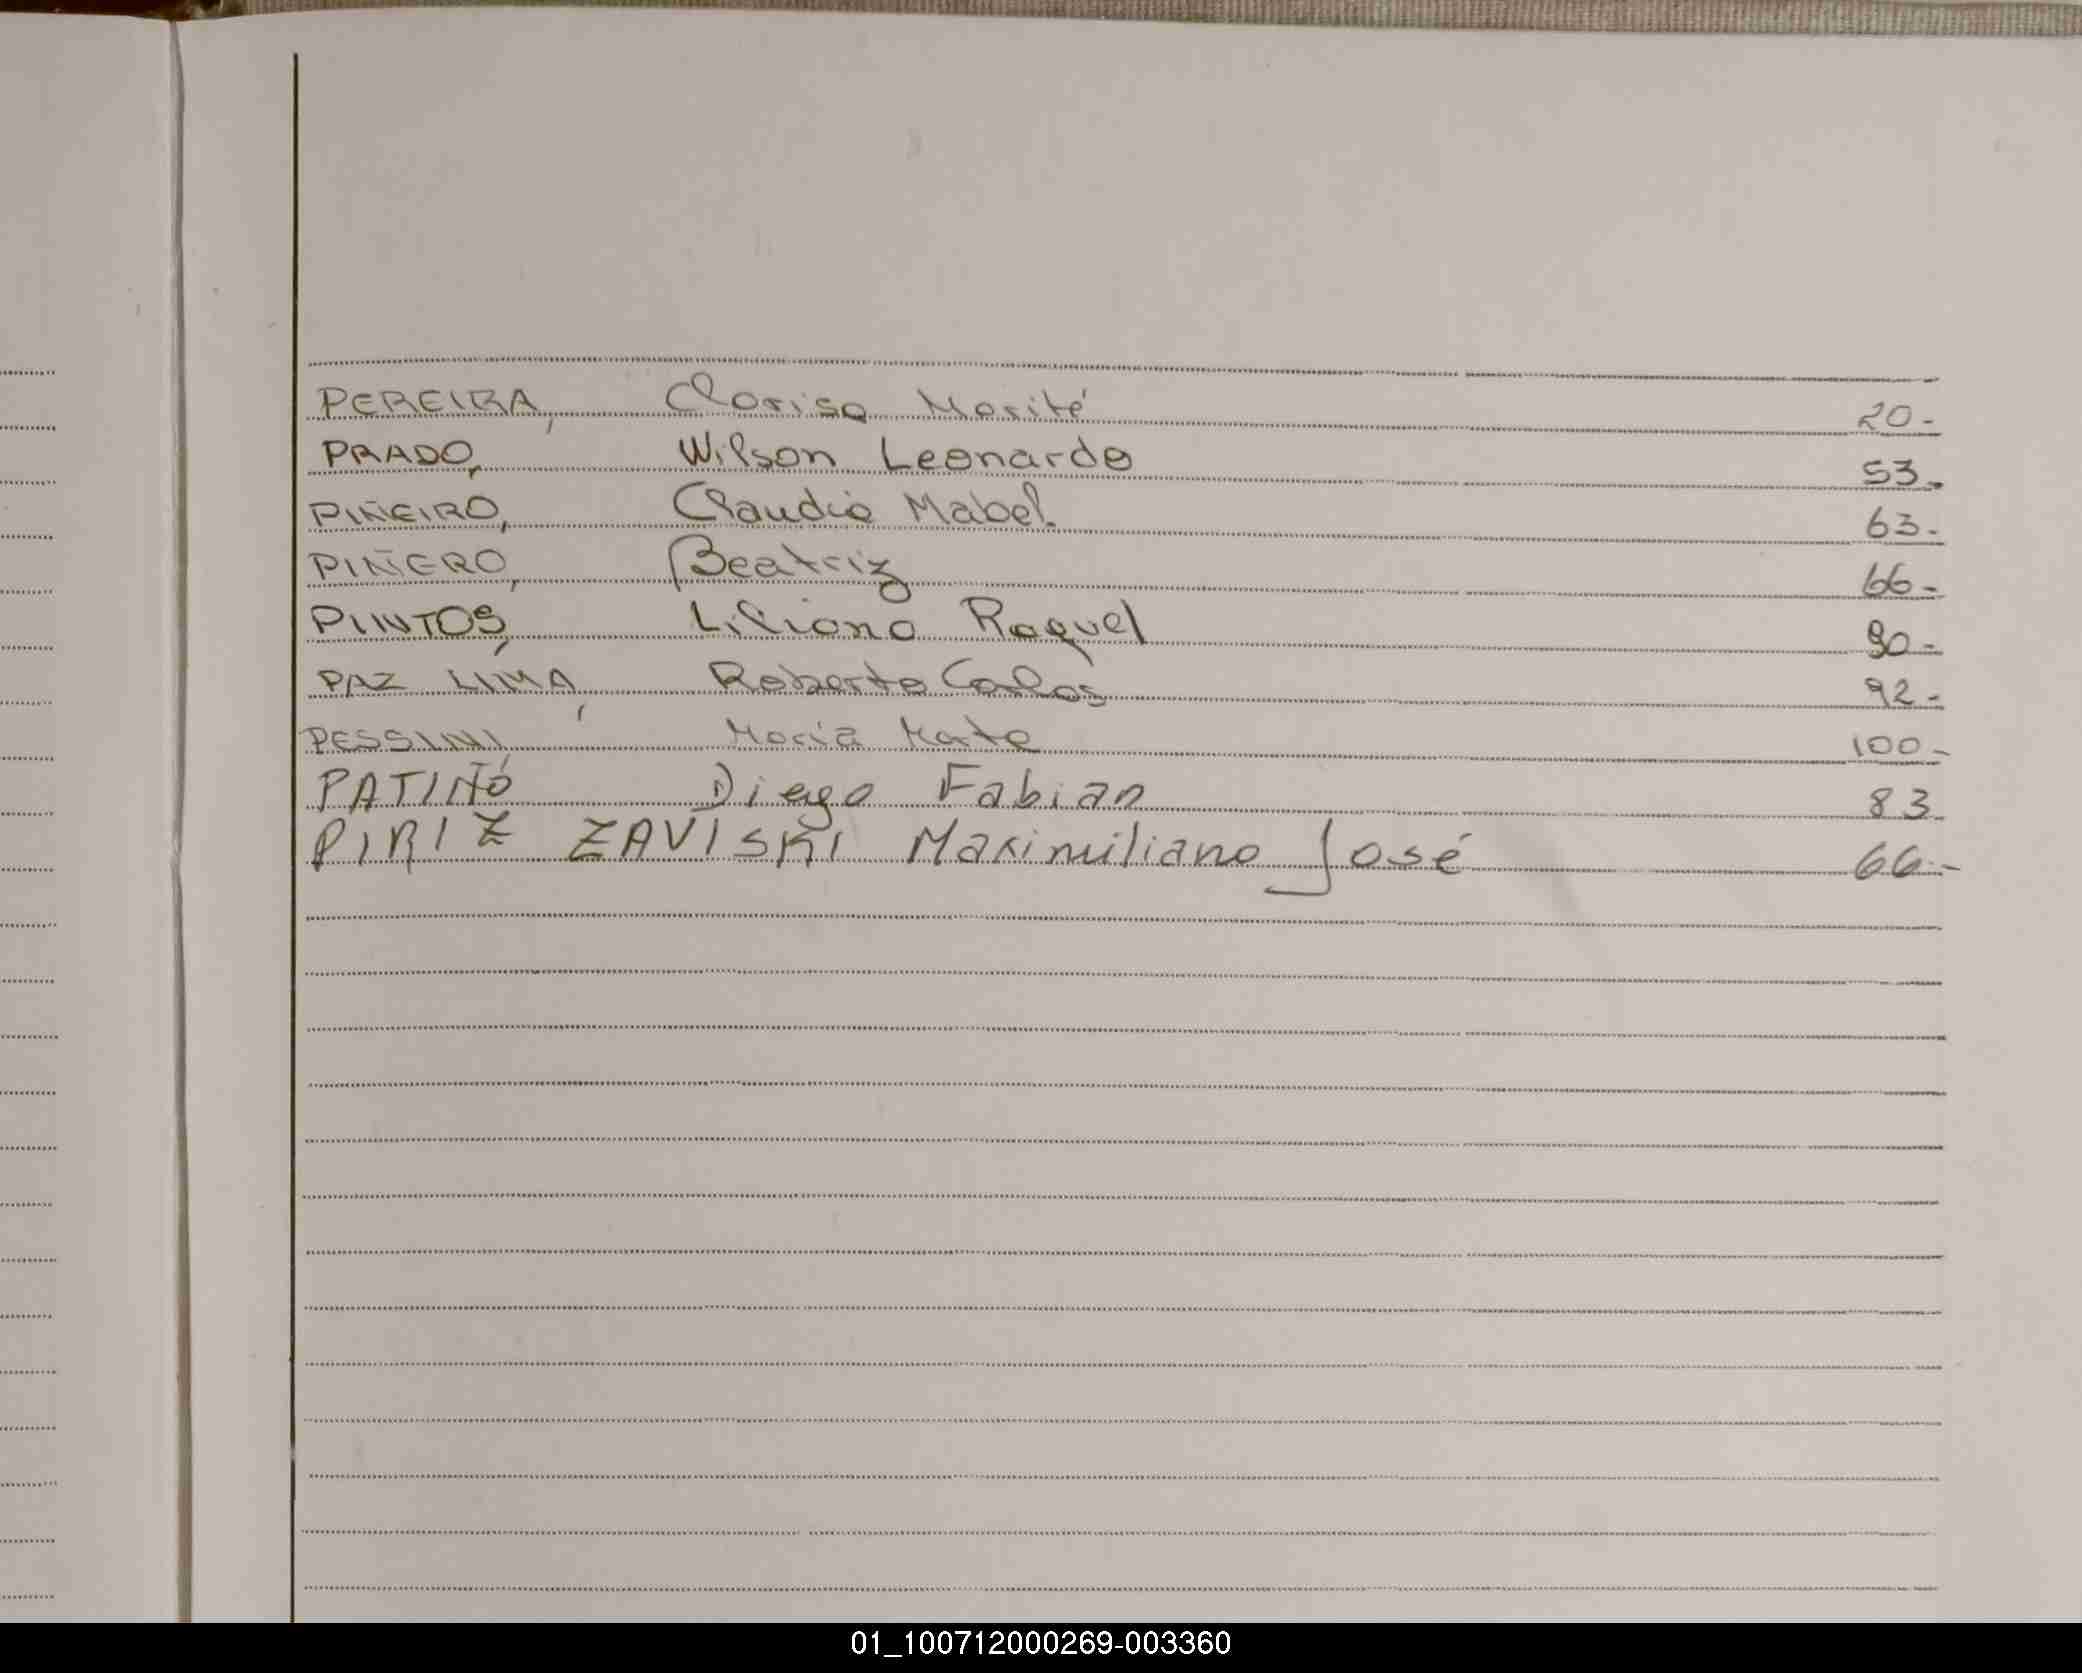 PEREIRA, Clarisa Marité 20-
PRADO, Wilson Leonardo 53-
PIÑEIRO, Claudia Mabel. 63-
PIÑERO, Beatriz 66-
PINTOS, Liliana Raquel 90-
PAZ LIMA, Roberto Carlos 92-
PESSINI, María Marta 100-
PATIÑO Diego Fabian 83
PIRIZ ZAVISKI Maximiliano José 66-
01_100712000269-003360